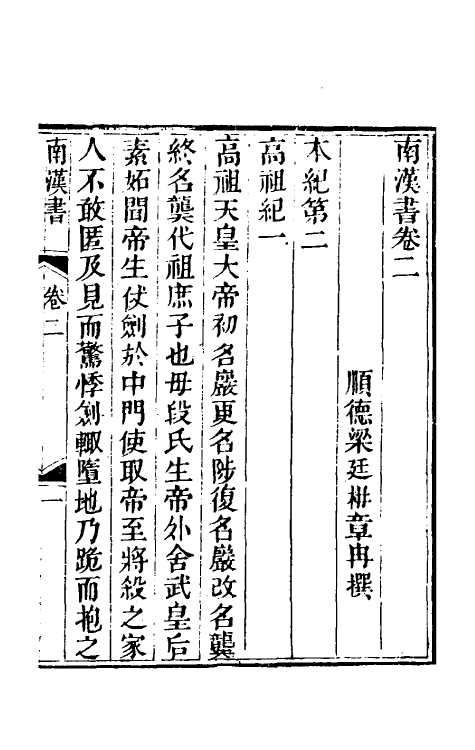 南漢書卷二
順德梁廷枏章冉撰
本紀第二
高祖紀一
高祖天皇大帝初名巖更名陟復名巖改名龑
終名龑代祖庶子也毋段氏生帝外舍武皇后
素妬聞帝生仗劍於中門使取帝至將殺之家
人不敢匿及見而驚悸劍輙墮地乃跪而抱之
南漢書
卷二
一